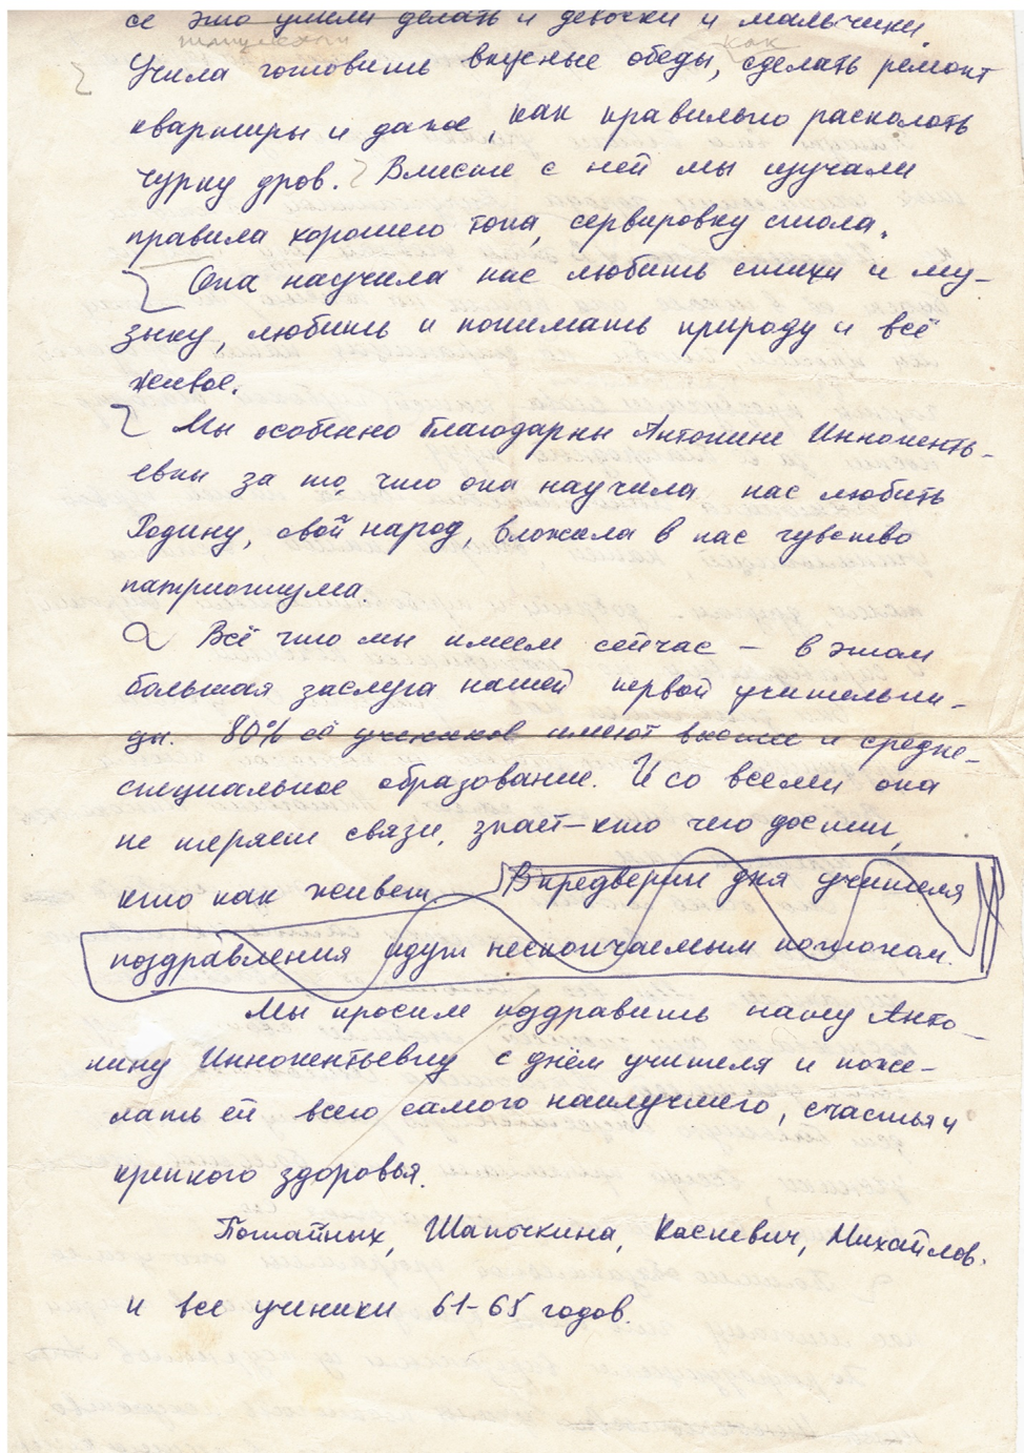 се это умели делать и девочки и мальчики.
как
Учила готовить вкусные обеды, сделать ремонт
квартиры и даже, как правильно расколоть
чурку дров. Вместе с ней мы изучали
правила хорошего тона, сервировку стола.
Она научила нас любить стихи и му-
зыку, любить и понимать природу и всё
живое.
Мы особенно благодарны Антонине Иннокенть-
евны за то, что она научила нас любить
Родину, свой народ, вложила в нас чувство
патриотизма.
Всё что мы имеем сейчас – в этом
большая заслуга нашей первой учительни-
цы. 80% её учеников имеют высшее и средне-
специальное образование. И со всеми она
не теряет связи, знает–кто чего достиг,
кто как живет В предверии дня учителя
поздравления идут нескончаемым потоком.
Мы просим поздравить нашу Анто-
нину Иннокентьевну с днём учителя и поже-
лать ей всего самого наилучшего, счастья и
крепкого здоровья.
Поштайных, Шапочкина, Каспевич, Михайлов.
и все ученики 61-65 годов.